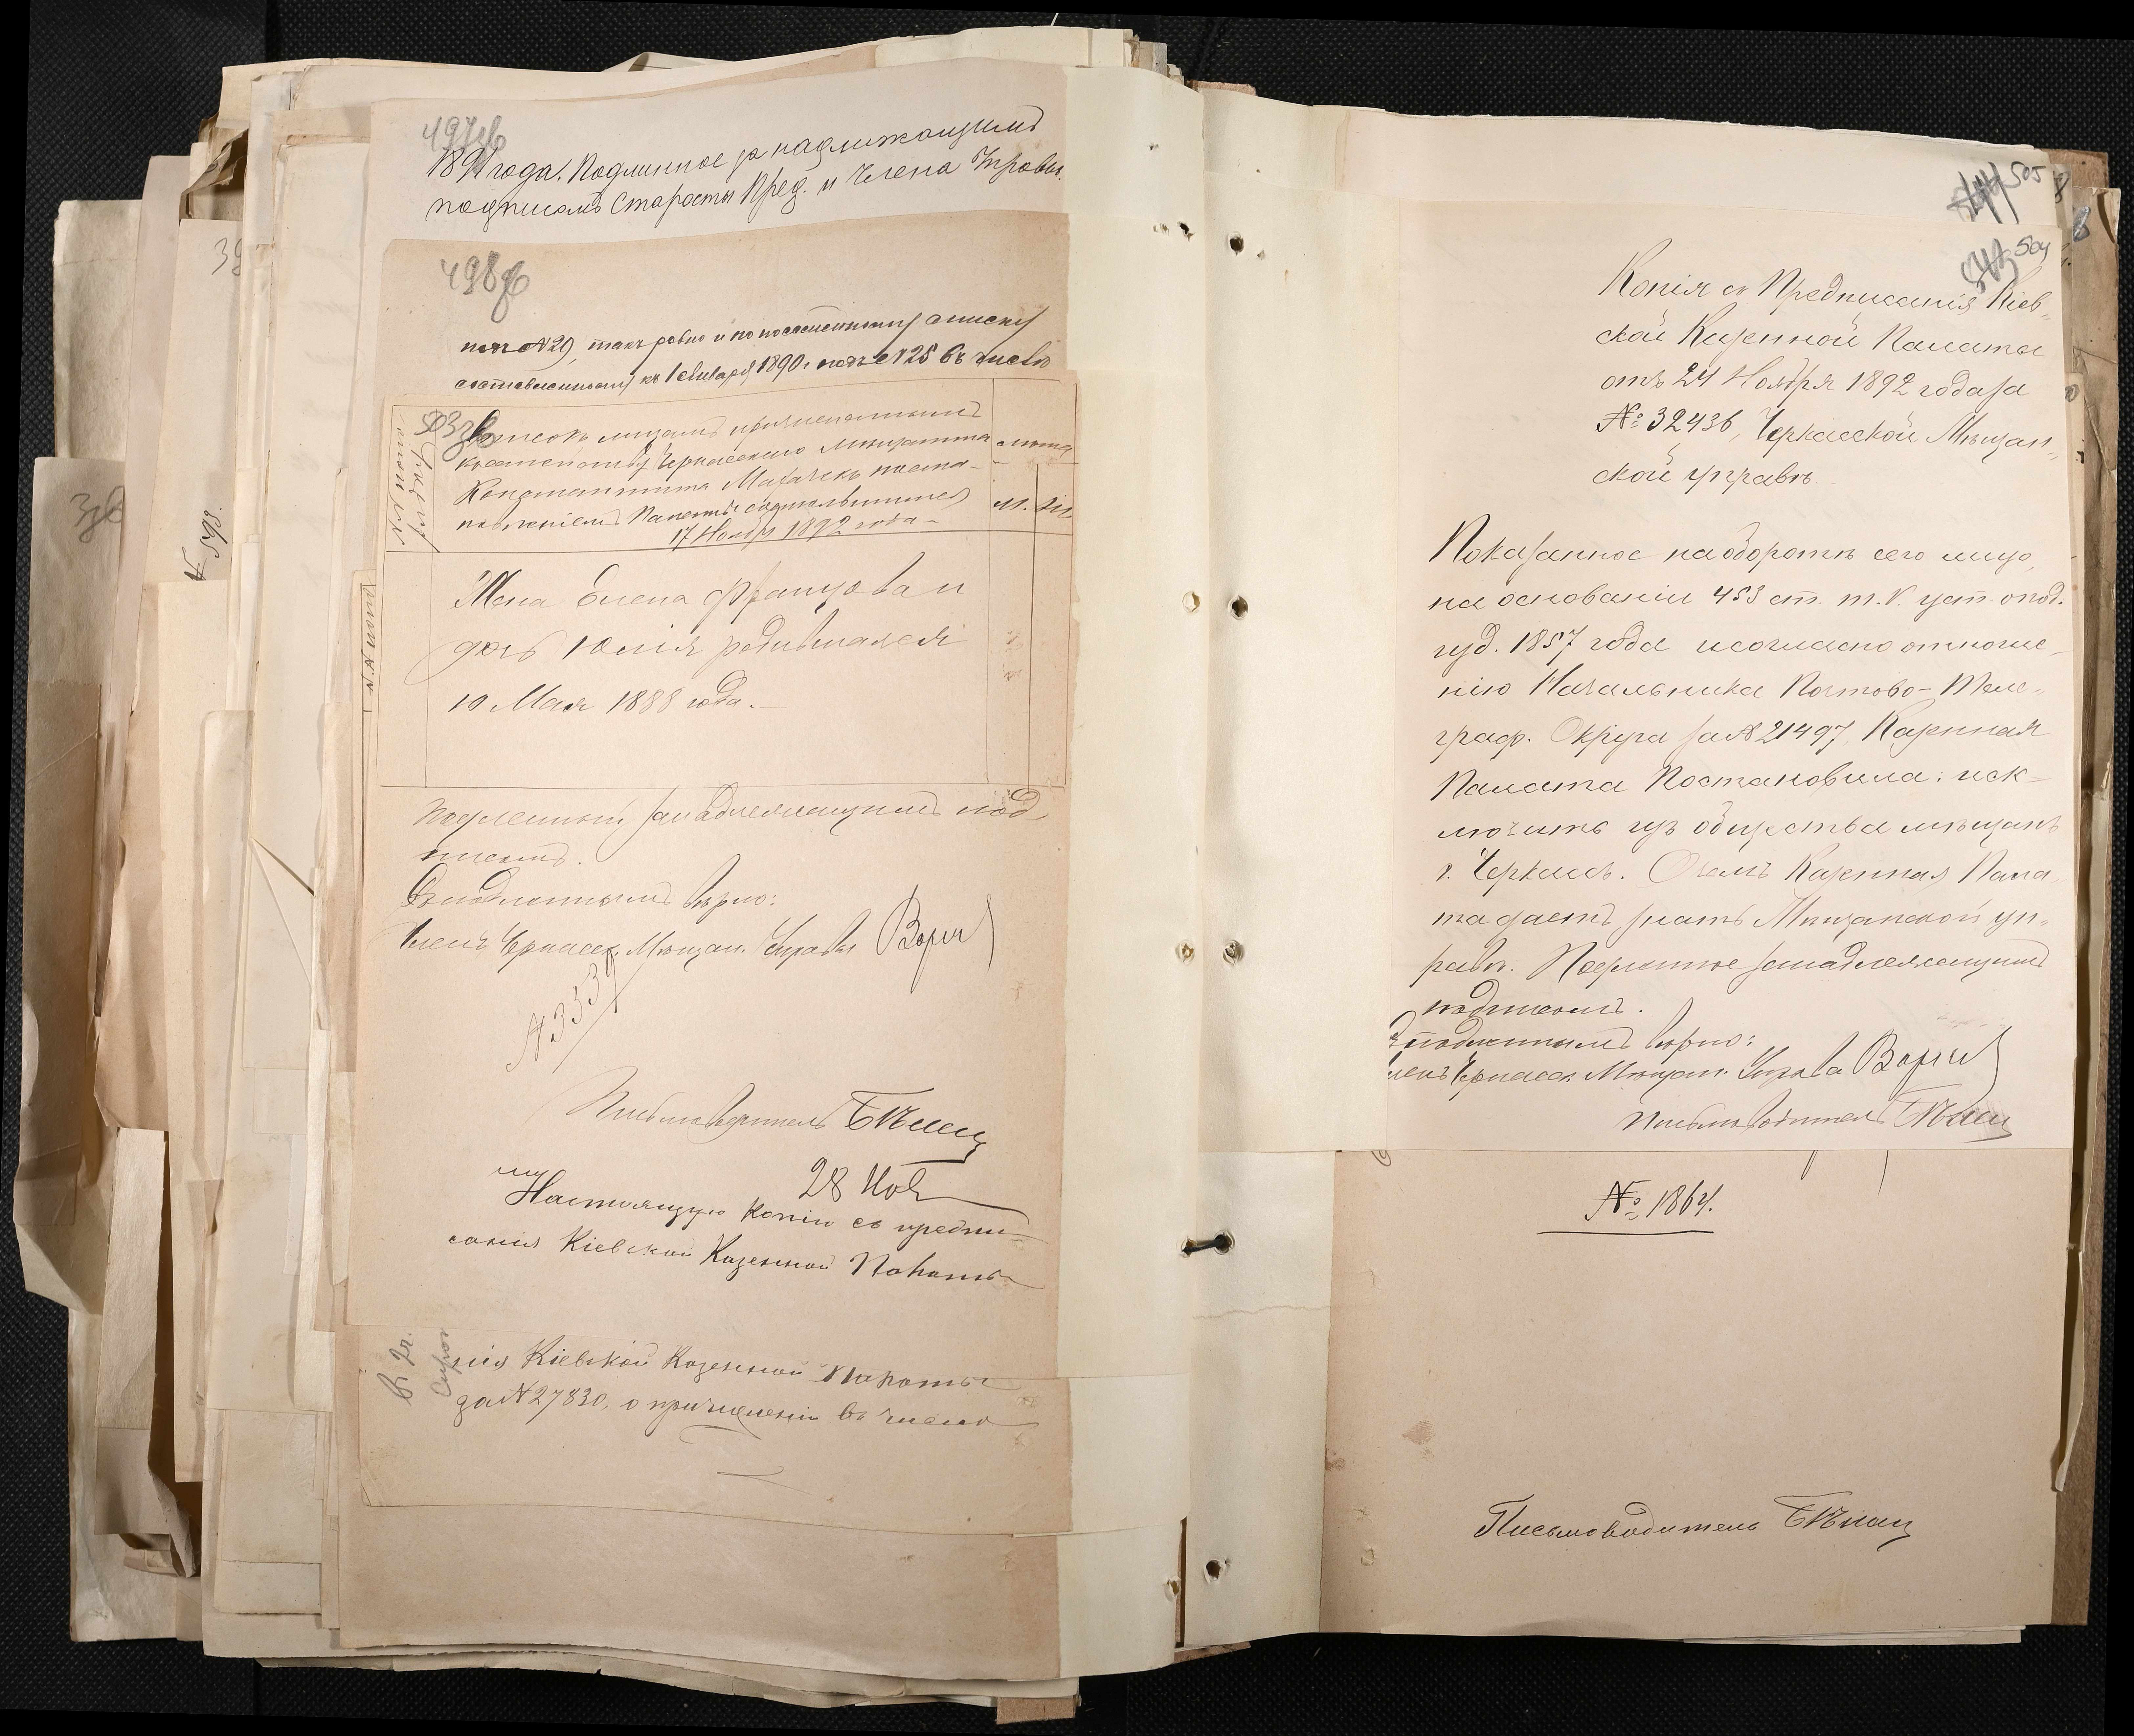 497об
1891 года. Подлинное за надлежащимъ
подписомъ Старосты Пред. и Члена Управы.
498об
подъ №29, такъ равно и по посемейному списку
составленному къ 1 Января 1890 г. подъ №25 въ число
503об
Списокъ лицамъ причисленнымъ
къ семейству Черкасскаго мѣщанина
Константина Махачекъ поста-
новленіемъ Палаты состоявшимся
17 Ноября 1892 года
лѣта
м. ж.
Жена Елена Францова и
дочь Юлія родившаяся
10 Мая 1888 года.
Подлинный за надлежащимъ под-
писомъ.
Съ подлиннымъ вѣрно:
Членъ Черкасск. Мѣщан. Управы
Письмоводитель
28 Ноя
Настоящую копію съ предпи-
санія Кіевской Казенной Палаты
нія Кіевской Казенной Палаты
за №27830, о причисленіи въ число
505
504
Копія съ Предписанія Кіев-
ской Казенной Палаты
отъ 24 Ноября 1892 года за
№ 32436, Черкасской Мѣщан-
ской управѣ.
Показанное на оборотѣ сего лицо,
на основаніи 453 ст. т. V. уст. о под.
изд. 1857 года и согласно отноше-
нію Начальника Почтово-Теле-
граф. Округа за №21497, Казенная
Палата Постановила: иск-
лючить изъ общества мѣщанъ
г. Черкасъ. О чемъ Казенная Пала
та даетъ знать Мѣщанской уп-
равѣ. Подлинное за надлежащимъ
подписомъ.
Съ подлиннымъ вѣрно:
Членъ Черкасск. Мѣщан. Управы
Письмоводитель
№ 1864.
Письмоводитель